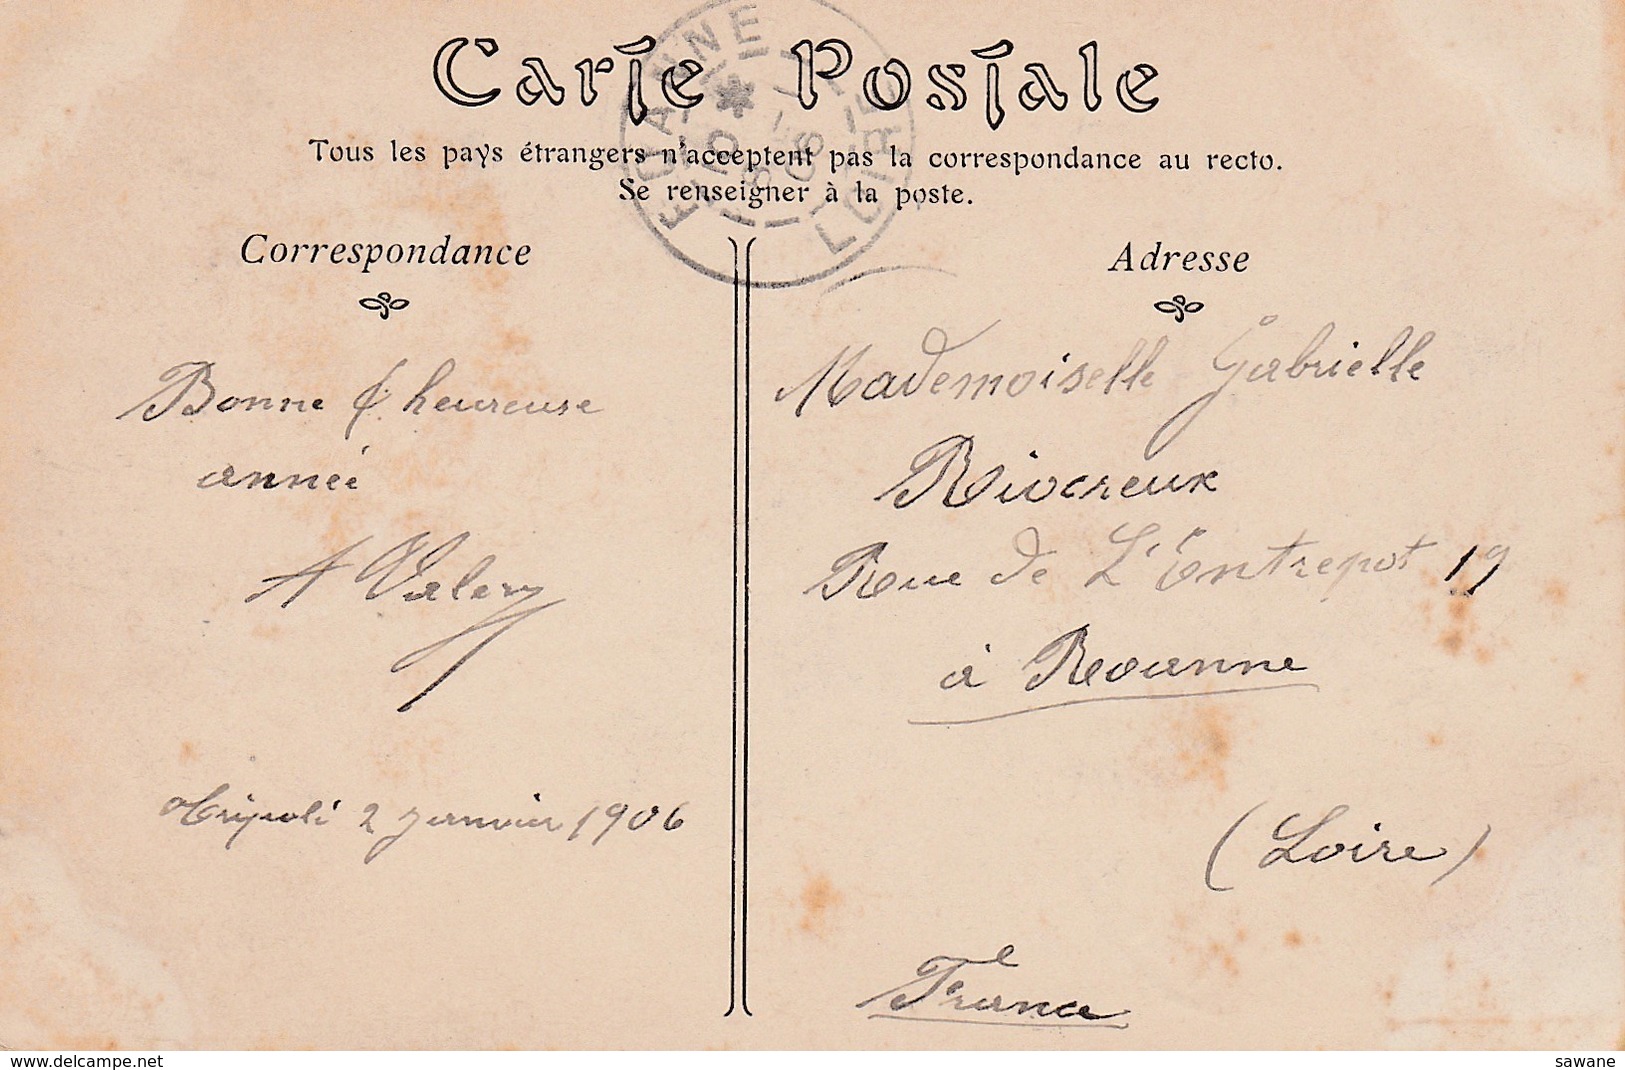 Carte Postale
Tous les pays étrangers n'acceptent pas la correspondance au recto.
Se renseigner à la poste.
Correspondance
Bonne & heureuse
année
A Valery
Tripoli 2 janvier 1906
Adresse
Mademoiselle Gabrielle
Rivereux
Rue de L'Entrepot 19
à Roanne
(Loire)
France
LOIRE
www.delcampe.net
sawane